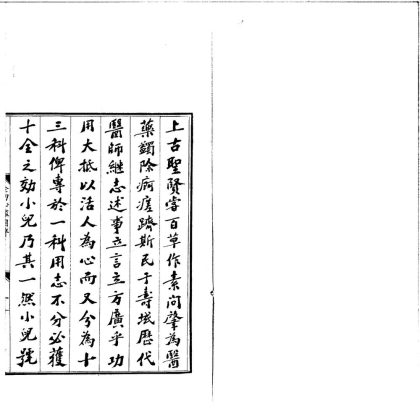 上古聖賢嘗百草作素問肇為醫
藥蠲除疴瘥躋斯民于壽域歷代
醫師繼志述事立言立方廣乎功
用大抵以活人為心而又分為十
三科俾專於一科用志不分必獲
十全之効小兒乃其一然小兒號